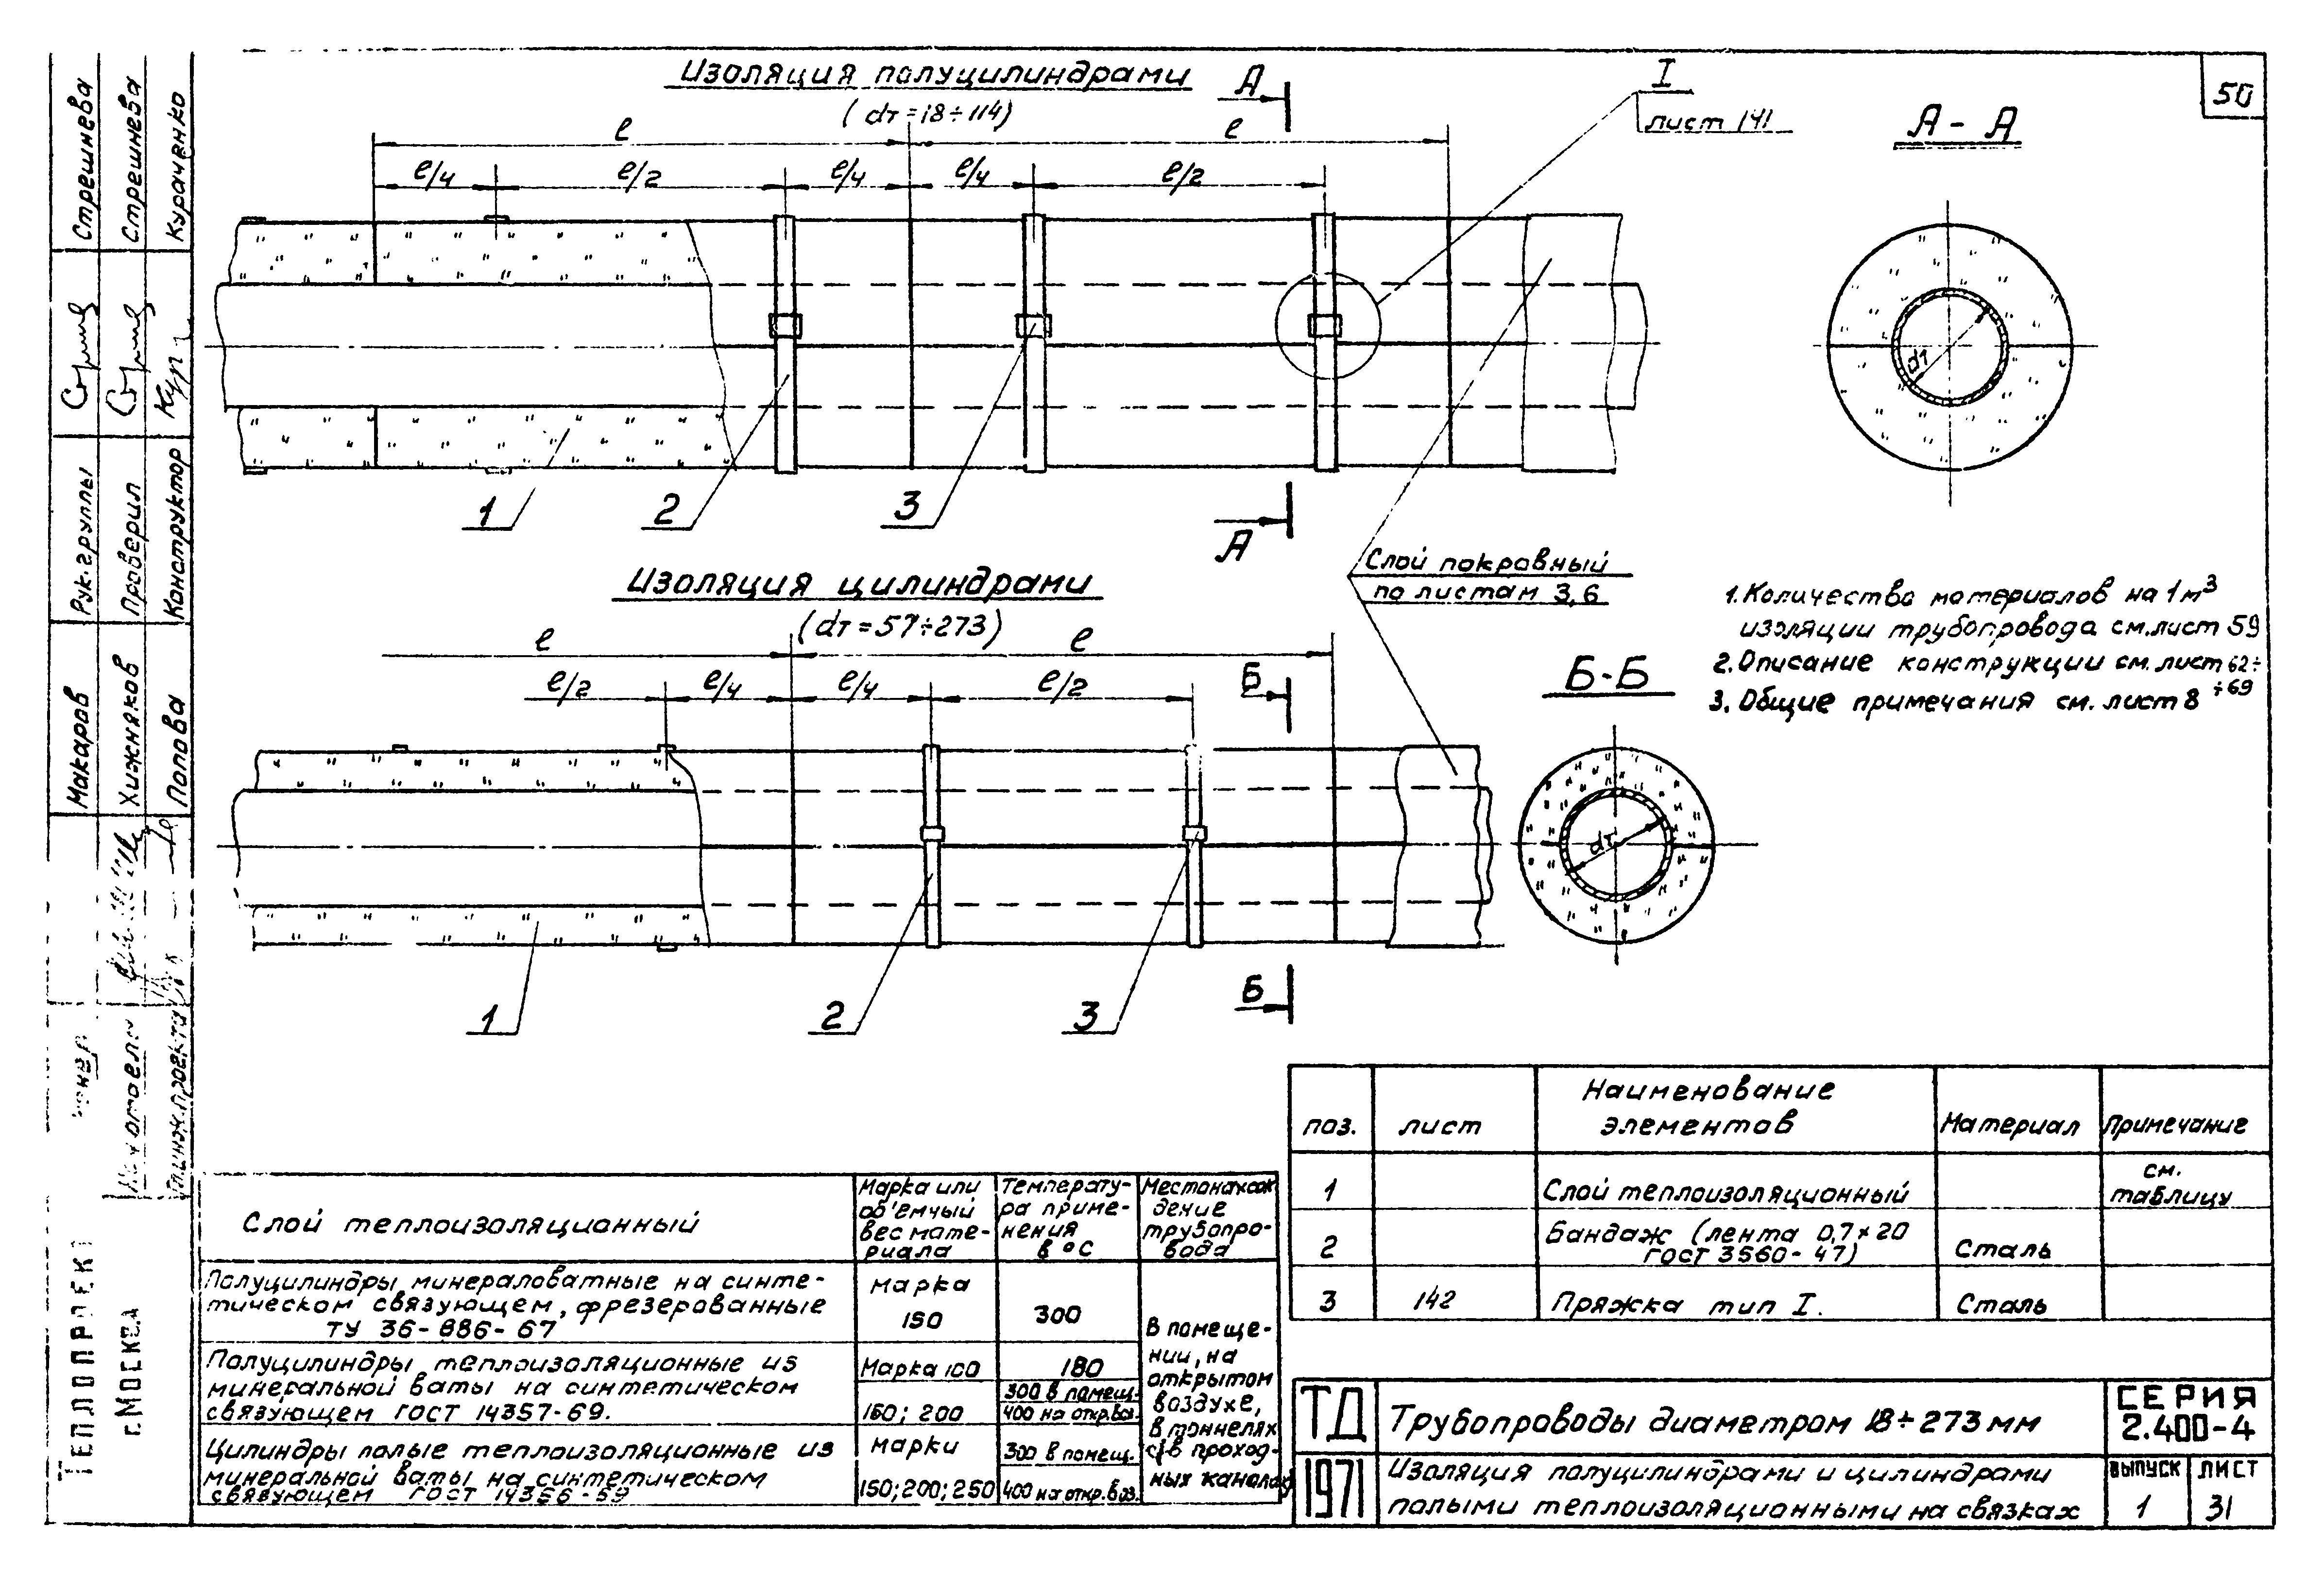 50
Изоляция полуцилиндрами
(dт=18÷114)
А
I
лист 141
А-А
ℓ
ℓ
ℓ/4
ℓ/2
ℓ/4
ℓ/4
ℓ/2
dт
1
2
3
А
Слой покровный
по листам 3,6
Изоляция цилиндрами
(dт=57÷273)
ℓ
ℓ
ℓ/2
ℓ/4
ℓ/4
ℓ/2
Б
Б-Б
dт
1
2
3
Б
1. Количество материалов на 1 м³
изоляции трубопровода см. лист 59
2. Описание конструкции см. лист 62÷
÷69
3. Общие примечания см. лист 8
поз.
лист
Наименование
элементов
Материал
Примечание
1
Слой теплоизоляционный
см.
таблицу
2
Бандаж (лента 0,7×20
ГОСТ 3560-47)
Сталь
3
142
Пряжка тип I.
Сталь
Слой теплоизоляционный
Марка или
об'емный
вес мате-
риала
Температу-
ра приме-
нения
в °С
Местонахож
дение
трубопро-
вода
Полуцилиндры минераловатные на синте-
тическом связующем, фрезерованные
ТУ 36-886-67
Марка
150
300
Полуцилиндры теплоизоляционные из
минеральной ваты на синтетическом
связующем ГОСТ 14357-69.
Марка 100
180
150; 200
300 в помещ.
400 на откр.воз.
Цилиндры полые теплоизоляционные из
минеральной ваты на синтетическом
связующем ГОСТ 14356-69
Марки
150; 200; 250
300 в помещ.
400 на откр.воз.
В помеще-
нии, на
открытом
воздухе,
в тоннелях
и в проход-
ных каналах
ТД
1971
Трубопроводы диаметром 18÷273 мм
Изоляция полуцилиндрами и цилиндрами
полыми теплоизоляционными на связках
СЕРИЯ
2.400-4
ВЫПУСК
1
ЛИСТ
31
Стрешнева
Стрешнева
Курачвнко
Рук. группы
Проверил
Конструктор
Макаров
Хижняков
Попова
Гл. инж. проекта
ТЕПЛОПРОЕКТ
г. Москва